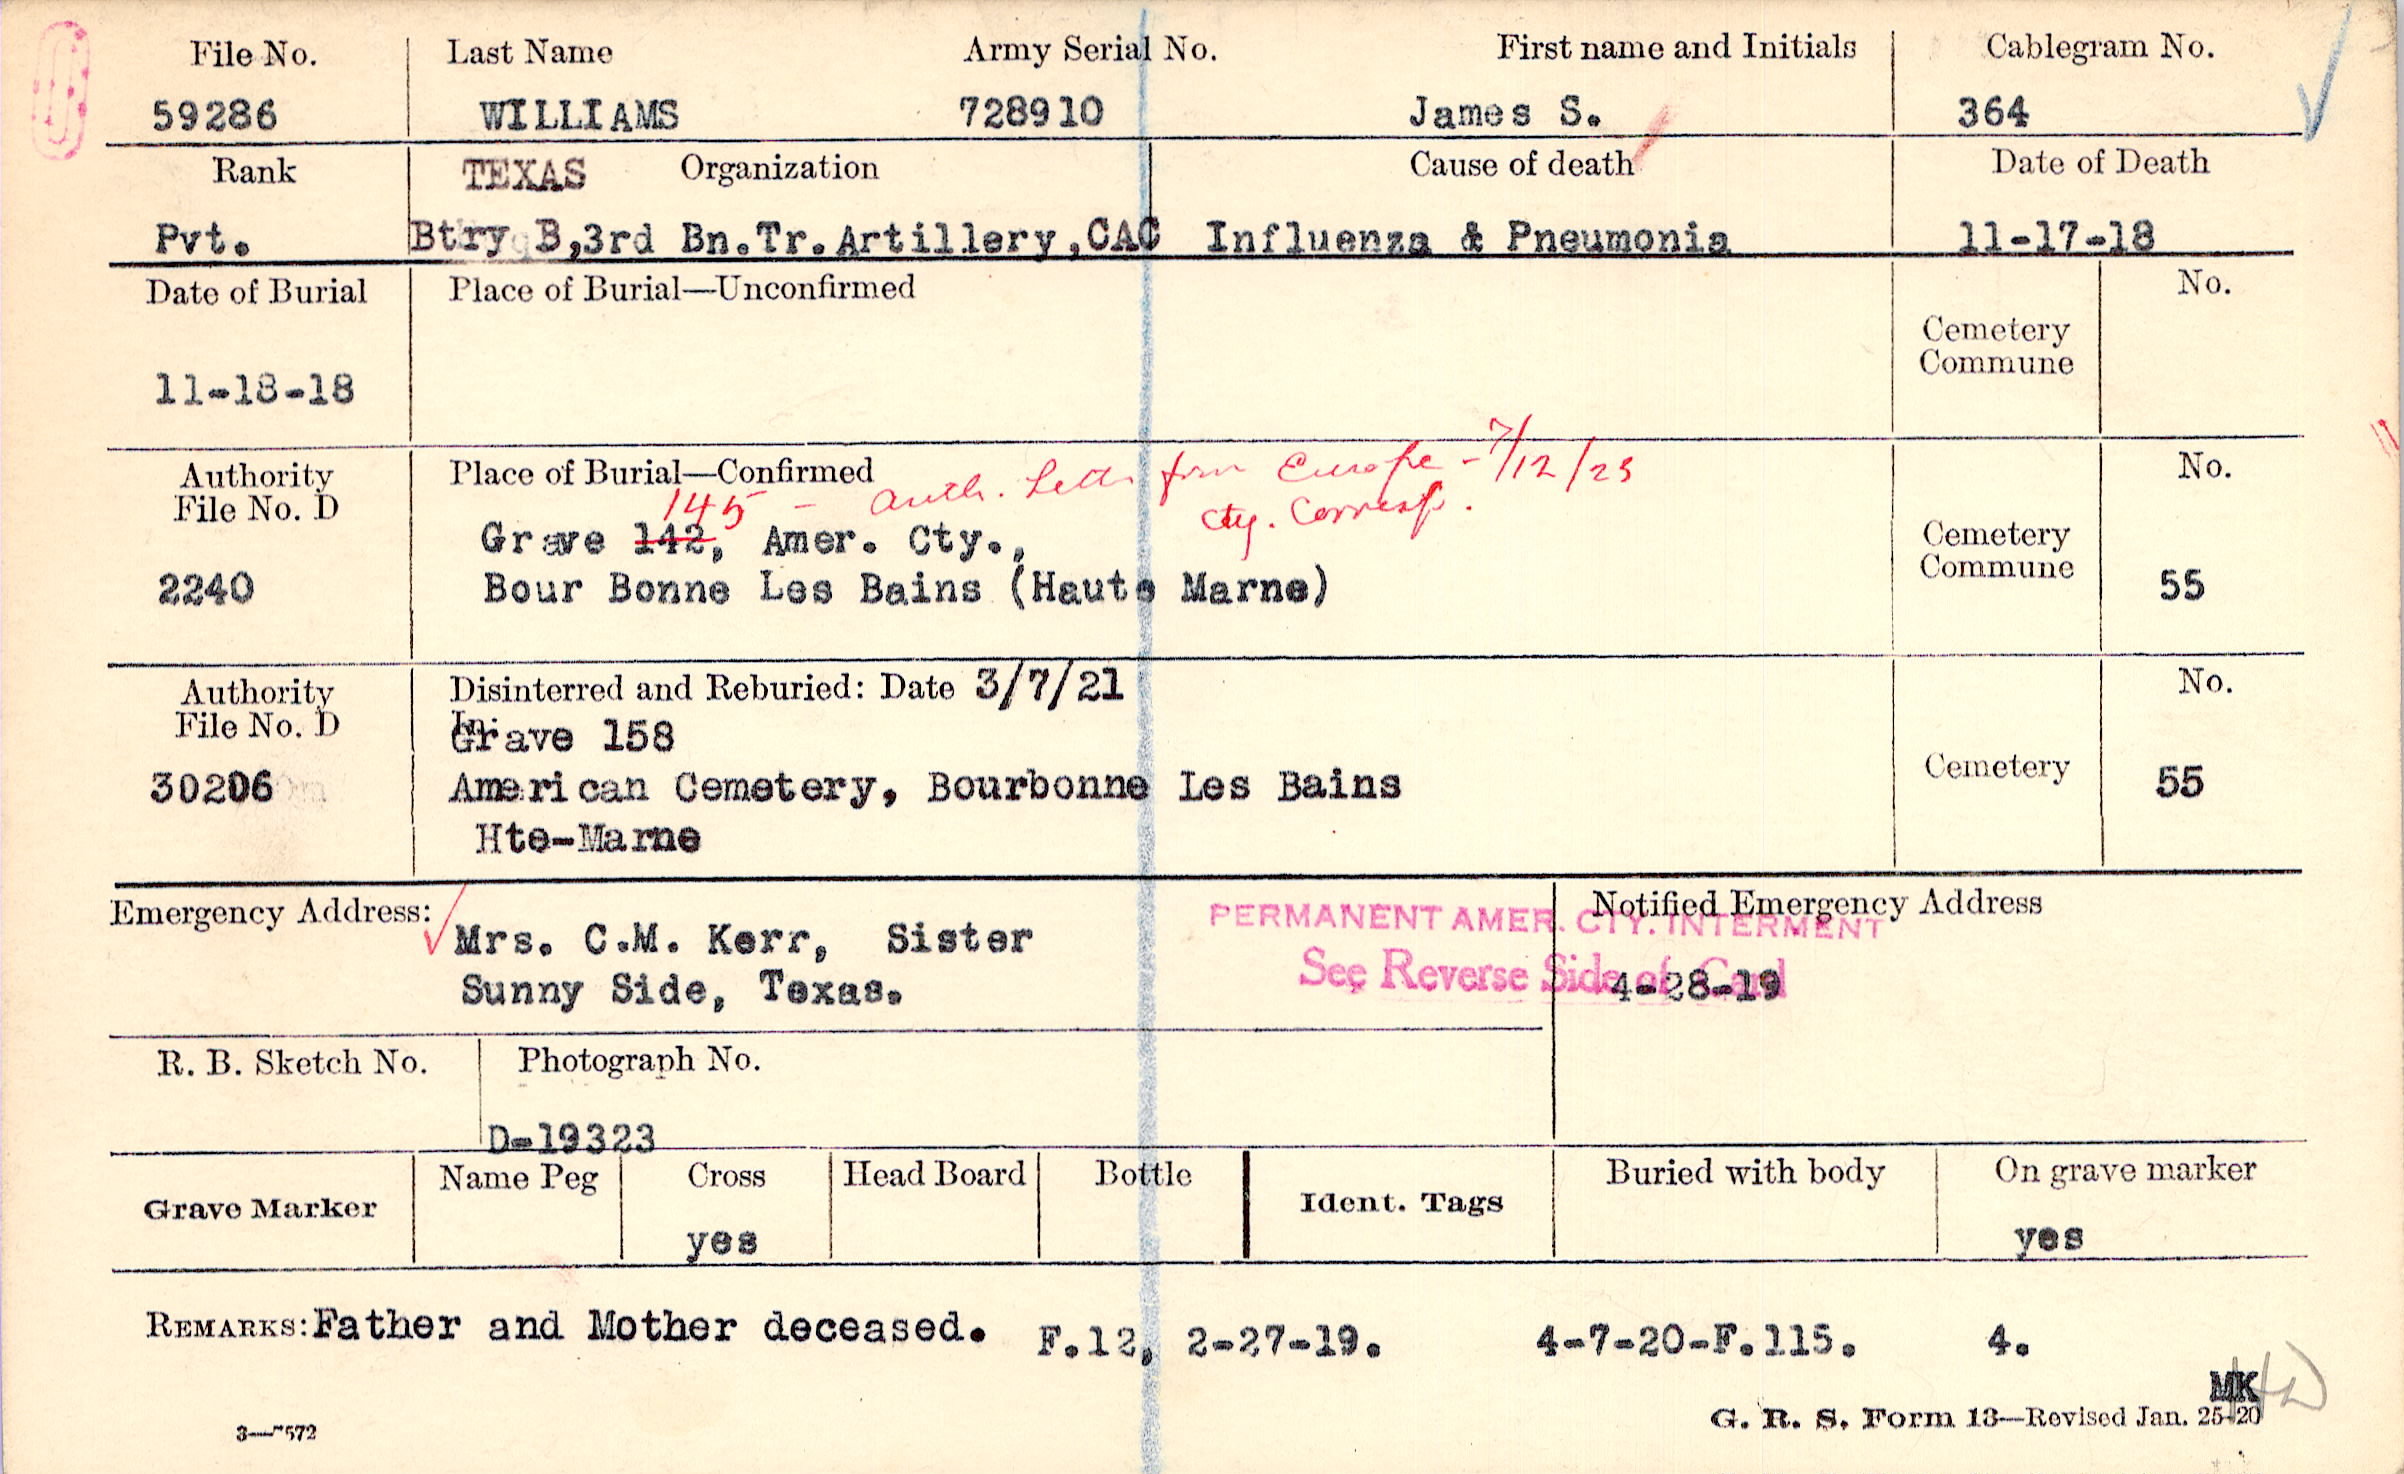 File No. Last Name Army Serial No. First name and Initials Cablegram No.
59286 WILLIAMS 728910 James S. 364
Rank TEXAS Organization Cause of death Date of Death
Pvt. Btry B,3rd Bn.Tr.Artillery,CAC Influenza & Pneumonia 11-17-18
Date of Burial Place of Burial—Unconfirmed No.
Cemetery
Commune
11-18-18
Authority Place of Burial—Confirmed No.
File No. D
145 - auth. Letter from Europe - 7/12/23
cty. Corresp.
Grave 142, Amer. Cty., Cemetery
Commune
2240 Bour Bonne Les Bains (Haute Marne) 55
Authority Disinterred and Reburied: Date 3/7/21 No.
File No. D In:
Grave 158
30206 American Cemetery, Bourbonne Les Bains Cemetery 55
Hte-Marne
Emergency Address: Notified Emergency Address
PERMANENT AMER. CTY. INTERMENT
Mrs. C.M. Kerr, Sister
See Reverse Side of Card
Sunny Side, Texas. 4-28-19
R. B. Sketch No. Photograph No.
D-19323
Grave Marker Name Peg Cross Head Board Bottle Ident. Tags Buried with body On grave marker
yes yes
REMARKS: Father and Mother deceased. F.12, 2-27-19. 4-7-20-F.115. 4.
MK
G. R. S. Form 13—Revised Jan. 25-20
3—7572